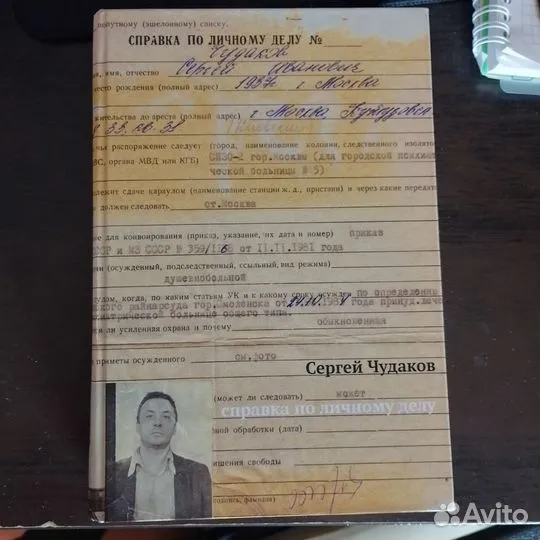 попутному (эшелонному) списку.
СПРАВКА ПО ЛИЧНОМУ ДЕЛУ №
Чудаков
имя, отчество Сергей Иванович
место рождения (полный адрес) 1937 г Москва
жительства до ареста (полный адрес) г Москва,
распоряжение следует (город, наименование колонии, следственного изолято
ВС, органа МВД или КГБ) СИЗО-2 гор.Москвы (для городской психиат
ческой больницы № 5)
лежит сдаче караулом (наименование станции ж. д., пристани) и через какие передат
должен следовать ст.Москва
ие для конвоирования (приказ, указание, их дата и номер) приказ
СССР и МЗ СССР № 359/1168 от 11.11.1981 года
(осужденный, подследственный, ссыльный, вид режима)
душевнобольной
судом, когда, по каким статьям УК и к какому сроку осужден по определени
ского райнарсуда гор. Смоленска от 24.10. года принуд.лече
психиатрической больнице общего типа.
ли усиленная охрана и почему обыкновенная
приметы осужденного см.фото
Сергей Чудаков
(может ли следовать) может
справка по личному делу
ной обработки (дата)
лишения свободы
подпись, фамилия)
Avito